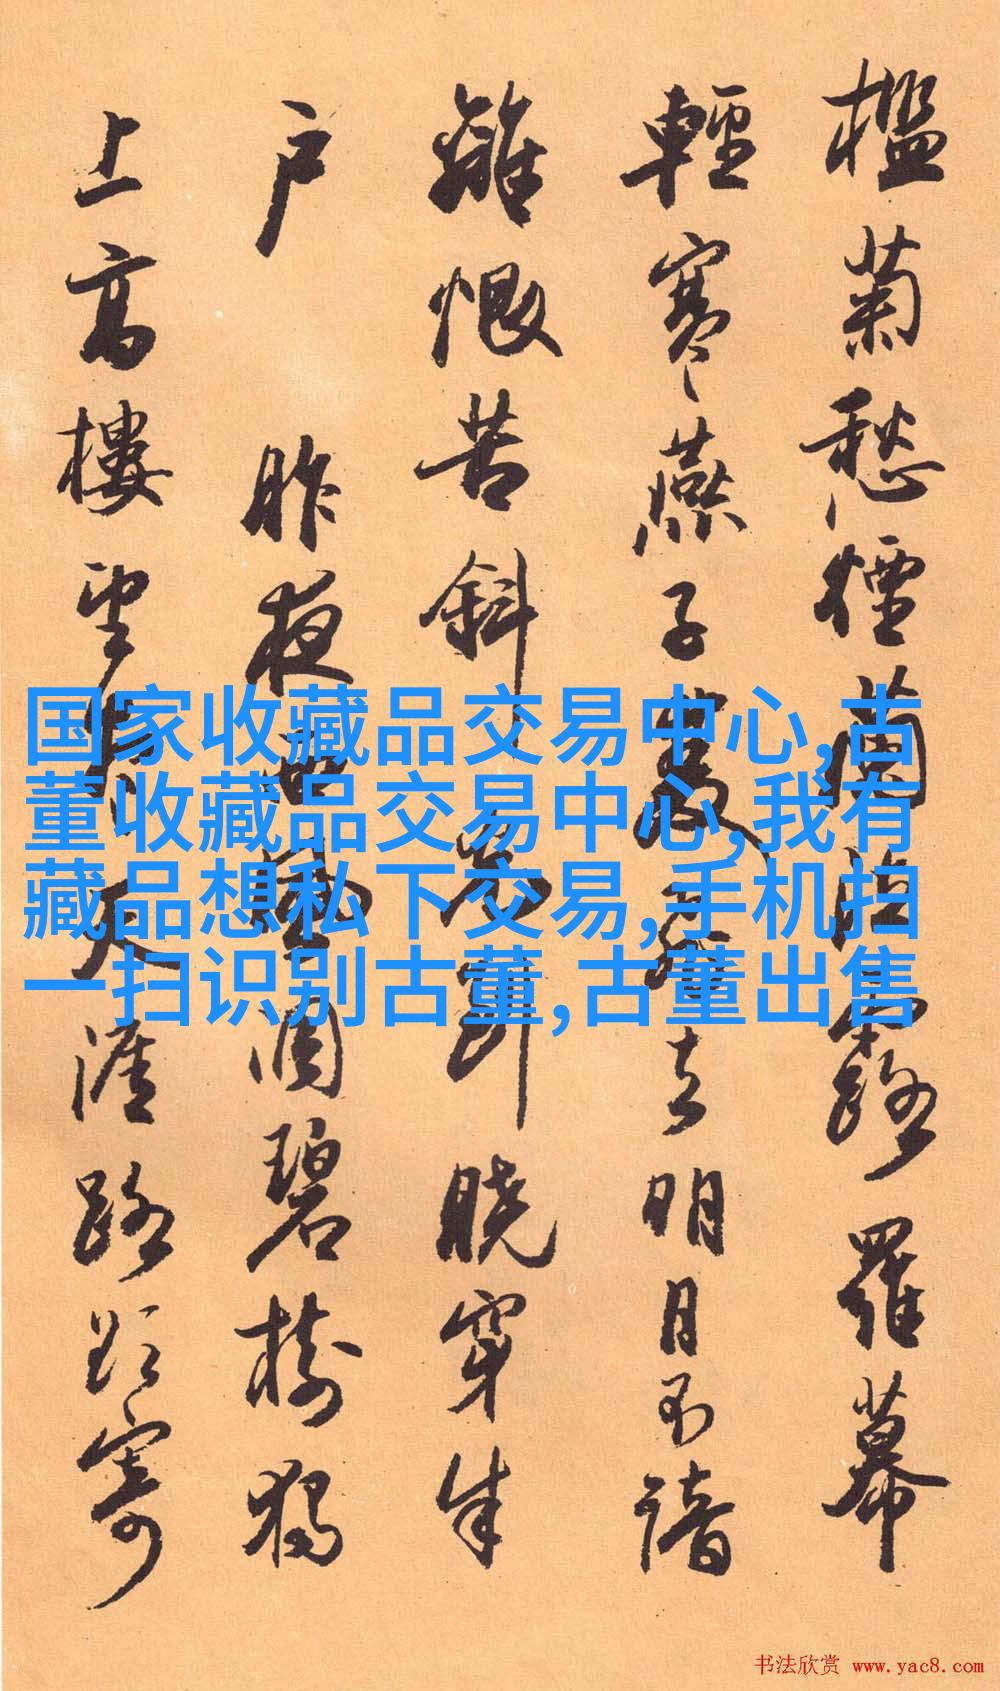 檻菊愁煙蘭泣露羅幕
輕寒燕子雙飛去明月不諳
離恨苦斜光到曉穿朱
户 昨夜西風凋碧樹獨
上高樓望盡天涯路欲寄
国家收藏品交易中心,古
董收藏品交易中心,我有
藏品想私下交易,手机扫
一扫识别古董,古董出售
书法欣赏 www.yac8.com